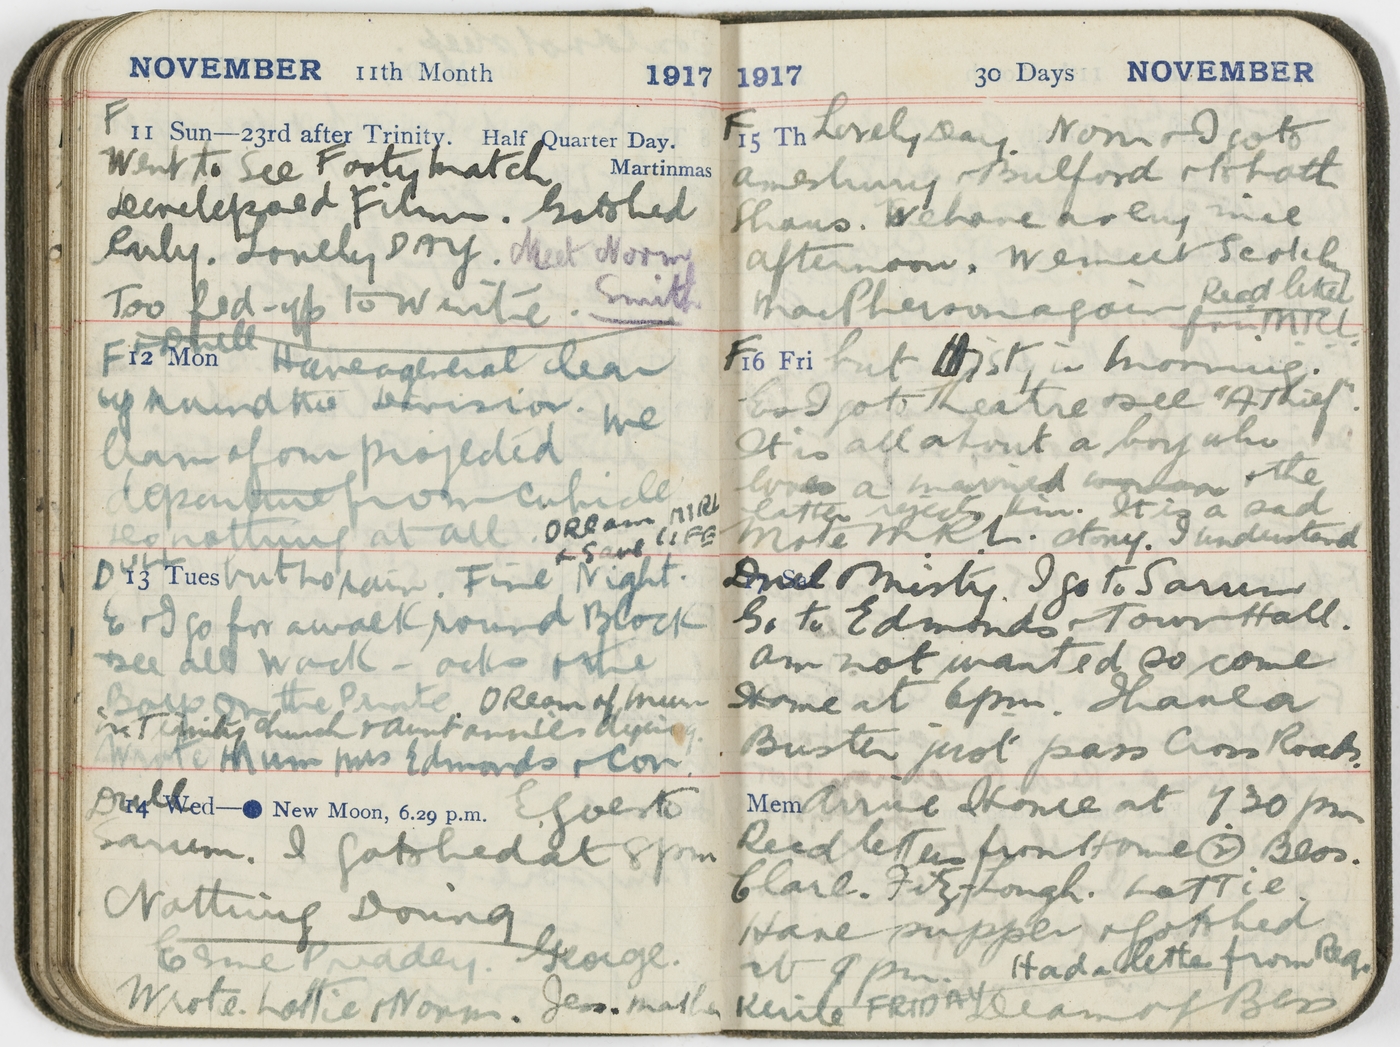 NOVEMBER 11th Month 1917
F
11 Sun—23rd after Trinity. Half Quarter Day.
Martinmas
Went to See Footy match
Developed Films. Go to bed
Early. Lovely DAY. Meet Norm
Smith
Too fed-up to Write.
F Drill
12 Mon Have a general clean
up round the Division. We
learn of our projected
departure from Cubicle
nothing at all DReam MIRL
+ Save LIFE
Dull
13 Tues but no rain. Fine Night.
E & I go for a walk round Block
& see all Wack - acks & the
Boys on the Prate. DReam of Mum
in Trinity Church & Aunt Annie's dying.
Wrote Mum Mrs Edmonds & Con.
Dull
14 Wed— New Moon, 6.29 p.m. E goes to
Sarum. I go to bed at 8 pm
Nothing Doing
Esme Preadey. George.
Wrote. Lottie & Norm. Jess. Mather
1917 30 Days NOVEMBER
F
15 Th Lovely Day. Norm & I go to
Amesbury & Bulford & Strath
Shaws. We have a very nice
afternoon. We meet Scotchy
MacPherson again Recd letter
from MRL.
F
16 Fri but Misty in Morning.
E & I go to Theatre & see "A Thief".
It is all about a boy who
loves a married woman & the
latter rejects him. It is a sad
Wrote MRL. story. I understand
Dul & Misty. I go to Sarum
Go to Edmonds & Town Hall.
Am not wanted so come
Home at 6pm. I have a
Buster just pass Cross Roads.
Mem Arrive Home at 7.30 pm
Recd letters from Home Beos.
Clarl. Fitz-Lough. LoTTie.
Have supper & go to bed
at 9 pm. Had a letter from Reg.
FRIDAY Dream of Bess